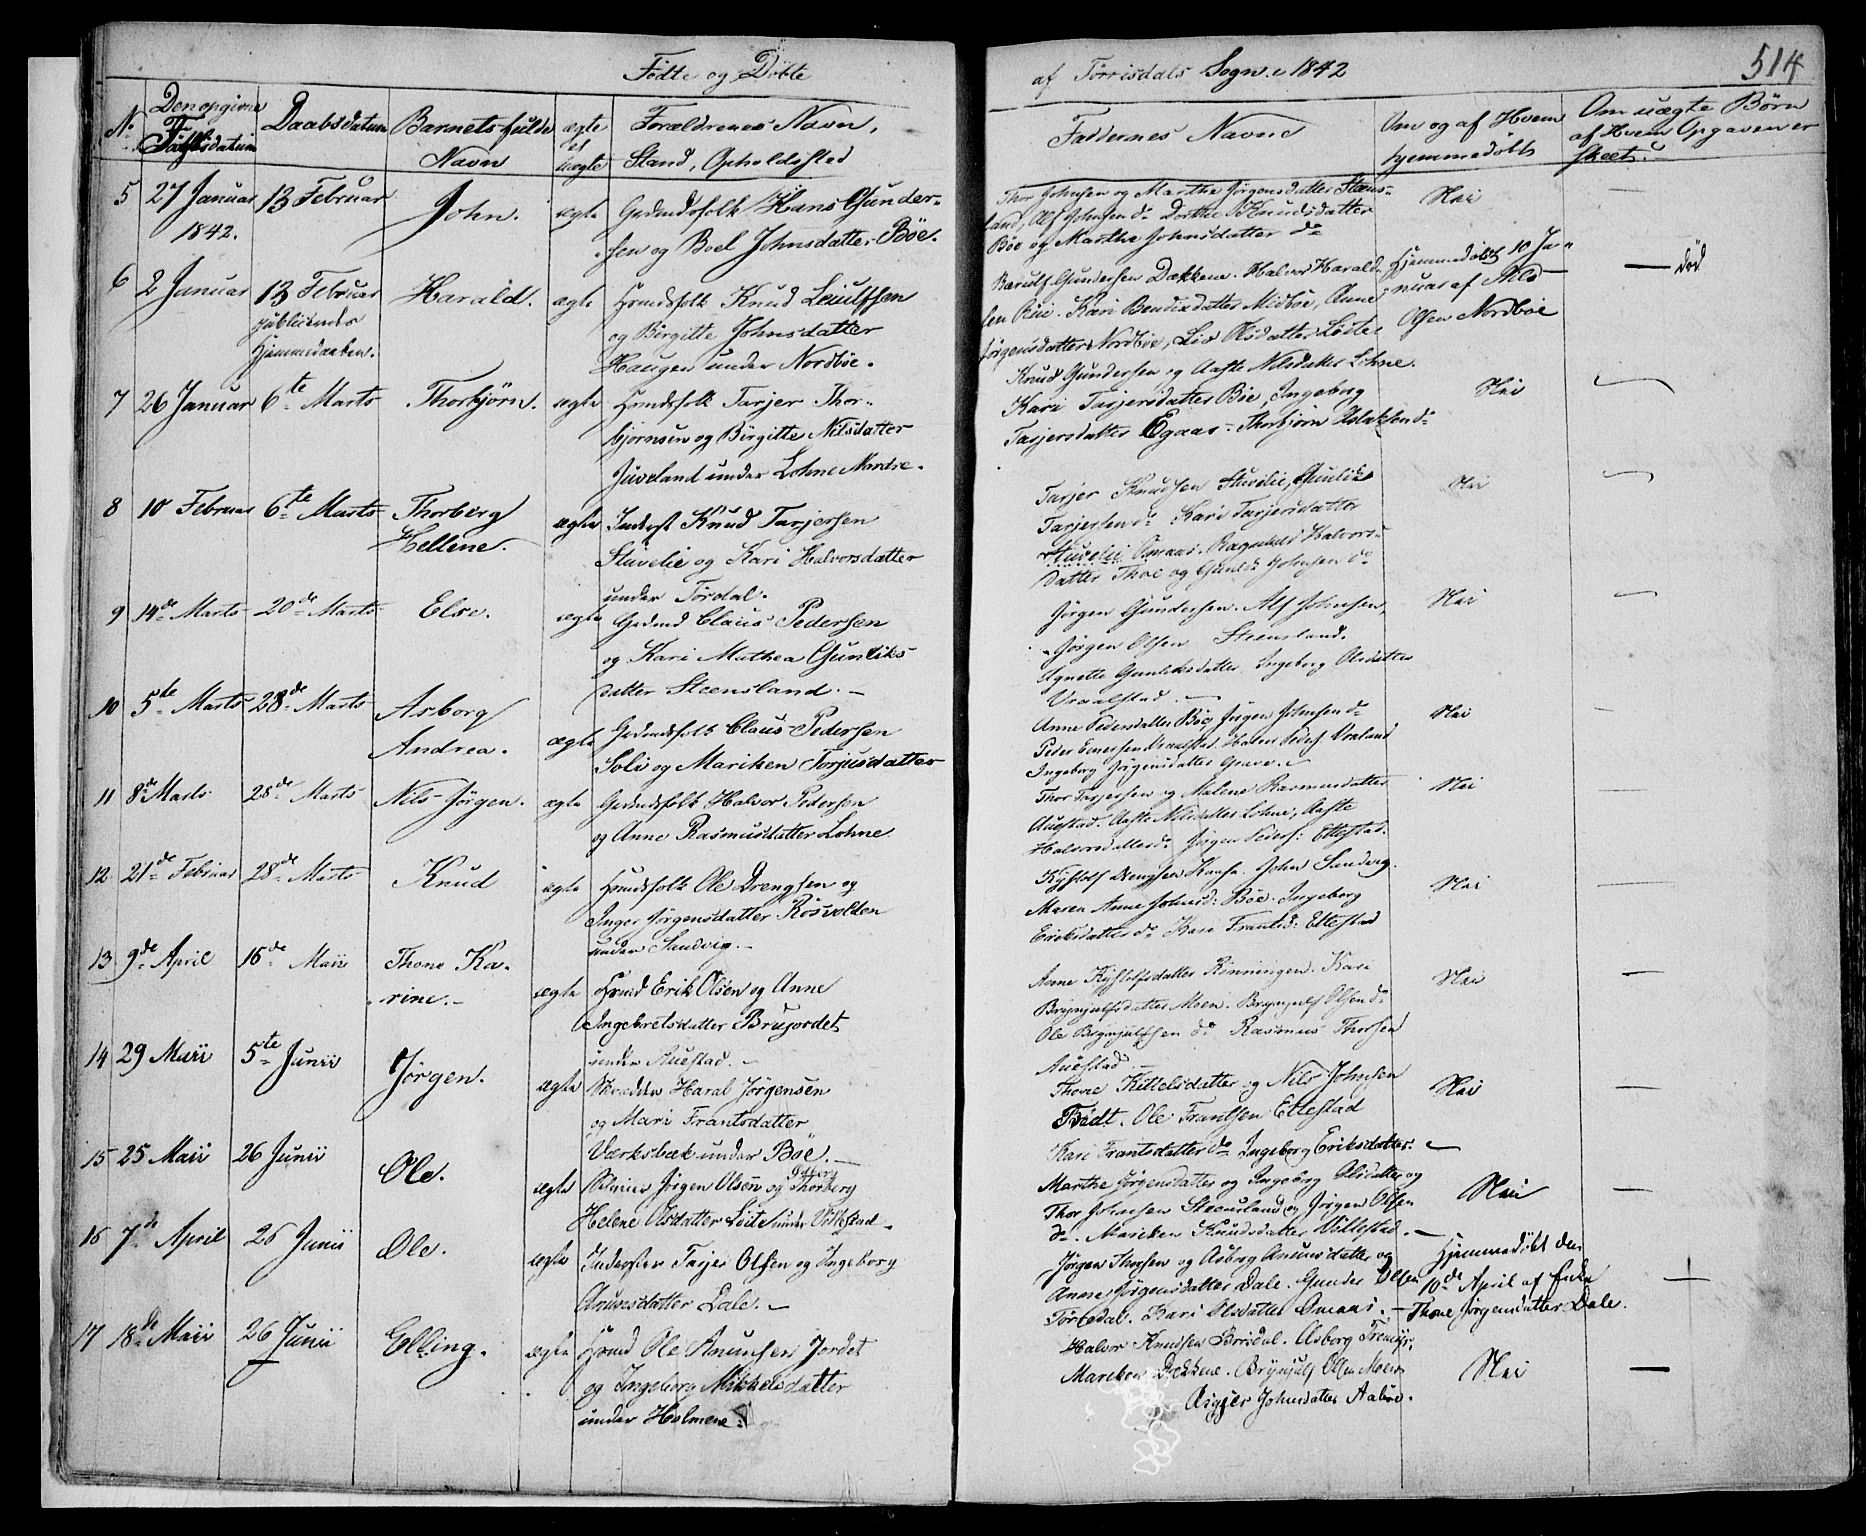 Födte og Döbte
af Törrisdals Sogn. 1842
514
No
Den opgivne
Födselsdatum
Daabsdatum
Barnets fulde
Navn
ægte
el
uægte
Forældrenes Navn,
Stand, Opholdssted
Faddernes Navne
Om og af Hvem
hjemmedöbt
Om uægte Börn
af Hvem Opgaven er
skeet.
5 27 Januar 13 Februar John. ægte Gaardmdsfolk Hans Gunder-
1842. sen og Boel Johnsdatter Böe.
Thor Johnsen og Marthe Jörgensdatter Steens-
land, Alf Johnsen do Dorthe Knudsdatter
Böe og Marthe Johnsdatter do
Nei —
6 2 Januar 13 Februar Harald. ægte Huusmdsfolk Knud Leiulfsen
publicerede og Birgitte Johnsdatter
Hjemmedaaben. Haugen under Nordböe.
Gundersen Dækkene. Halvor Harald-
sen Kari Bendixdatter Midböe, Anne
Jörgensdatter Nordböe, Liv Olsdatter Löite
Hjemmedöbt 10 Ja-
nuar af Nils
Olsen Nordböe
— död
7 26 Januar 6te Marts Thorbjörn. ægte Huusmdsfolk Tarjer Thor-
björnsen og Birgitte Nilsdatter
Juveland under Lohne Nordre.
Knud Gundersen og Aaste Nilsdatter Lohne.
Kari Tarjersdatter Böe, Ingeborg
Tarjersdatter Egaas - Thorbjörn Aslaksen do
Nei
8 10 Februar 6te Marts Thorberg ægte Inderst Knud Tarjersen
Hellene. Stuvelie og Kari Halvorsdatter
under Tördal.
Tarjer Knudsen Stuvelie, Gunlik
Tarjersen do Kari Tarjersdatter
Stuvelie Omaas. Ragnild Halvors-
datter Thoe og Gunild Johnsen do
Nei
9 14de Marts 20de Marts Else. ægte Gaardmd Claus Pedersen
og Kari Mathea Gunliks
datter Steensland. —
Jörgen Gundersen. Alf Johnsen,
Jörgen Olsen Steensland.
Agnette Gunliksdatter, Ingeborg Olsdatter
Vraalstad.
Nei
10 5te Marts 28de Marts Asborg ægte Gaardmdsfolk Claus Pedersen
Andrea. Soli og Mariken Torjusdatter
Anne Pedersdatter Böe, Jörgen Johnsen do
Peder Vraalstad. Halvor Peders Vraland
Ingeborg Jörgensdatter Grave.
Nei —
11 8de Marts 28de Marts Nils Jörgen. ægte Gaardmdsfolk Halvor Pedersen
og Anne Rasmusdatter Lohne
Thor Tarjersen og Malene Rasmusdatter
Auestad. Aaste Nilsdatter Lohne, Aaste
Halvorsdatter do Jörgen Peders: Ettestad.
Nei —
12 21de Februar 28de Marts Knud ægte Huusmdsfolk Ole Drengsen og
Inger Jörgensdatter Rösvolden
under Sandvig. —
Drengsen John Sandvig.
Maren Anne Johnsd: Böe. Ingeborg
Eriksdatter do Kari Frantsd: Ettestad
Nei —
13 9de April 16de Maii Thone Ka- ægte Huusmd Erik Olsen og Anne
rine. — Ingebretsdatter Brujordet
under Auestad. —
Anne Rönningen. Kari
Brynjulfsdatter Moen. Brynjulf Olsen do
Ole Brynjulfsen do Rasmus Thorsen
Auestad
Nei —
14 29 Maii 5te Junii Jörgen. ægte Skrædder Haral Jörgensen
og Mari Frantsdatter
Værksbæk under Böe. —
Thone Kittelsdatter og Nils Johnsen
Tvedt. Ole Frantsen Ettestad
Kari Frantsdatter do Ingeborg Eriksdatter. —
Nei —
15 25 Maii 26 Junii Ole. ægte Jörgen Olsen og Thorberg
Helene Olsdatter Löite under Vittestad —
Marthe Jörgensdatter og Ingeborg Olsdatter og
Thor Johnsen Steensland og Jörgen Olsen
do. Mariken Knudsdatter Vittestad. —
Nei —
16 7de April 26 Junii Ole. ægte Inderster Tarjer Olsen og Ingeborg
Anunsdatter Dale. —
Jörgen Thorsen og Asborg Anunsdatter og
Anne Jörgensdatter Dale. Gunder Olsen
Törisdal. Kari Olsdatter Omaas. —
Hjemmedöbt den
10de April af Enke
Thone Jörgensdatter Dale.
17 18de Maii 26 Junii Elling. ægte Huusmd Ole Anunsen Jordet
og Ingeborg Mikkelsdatter
under Holmene.
Halvor Knudsen Börsdal. Asborg
Mariken Dækkene. Brynjulf Olsen Moen
Asgjer Johnsdatter Aaböe.
Nei —